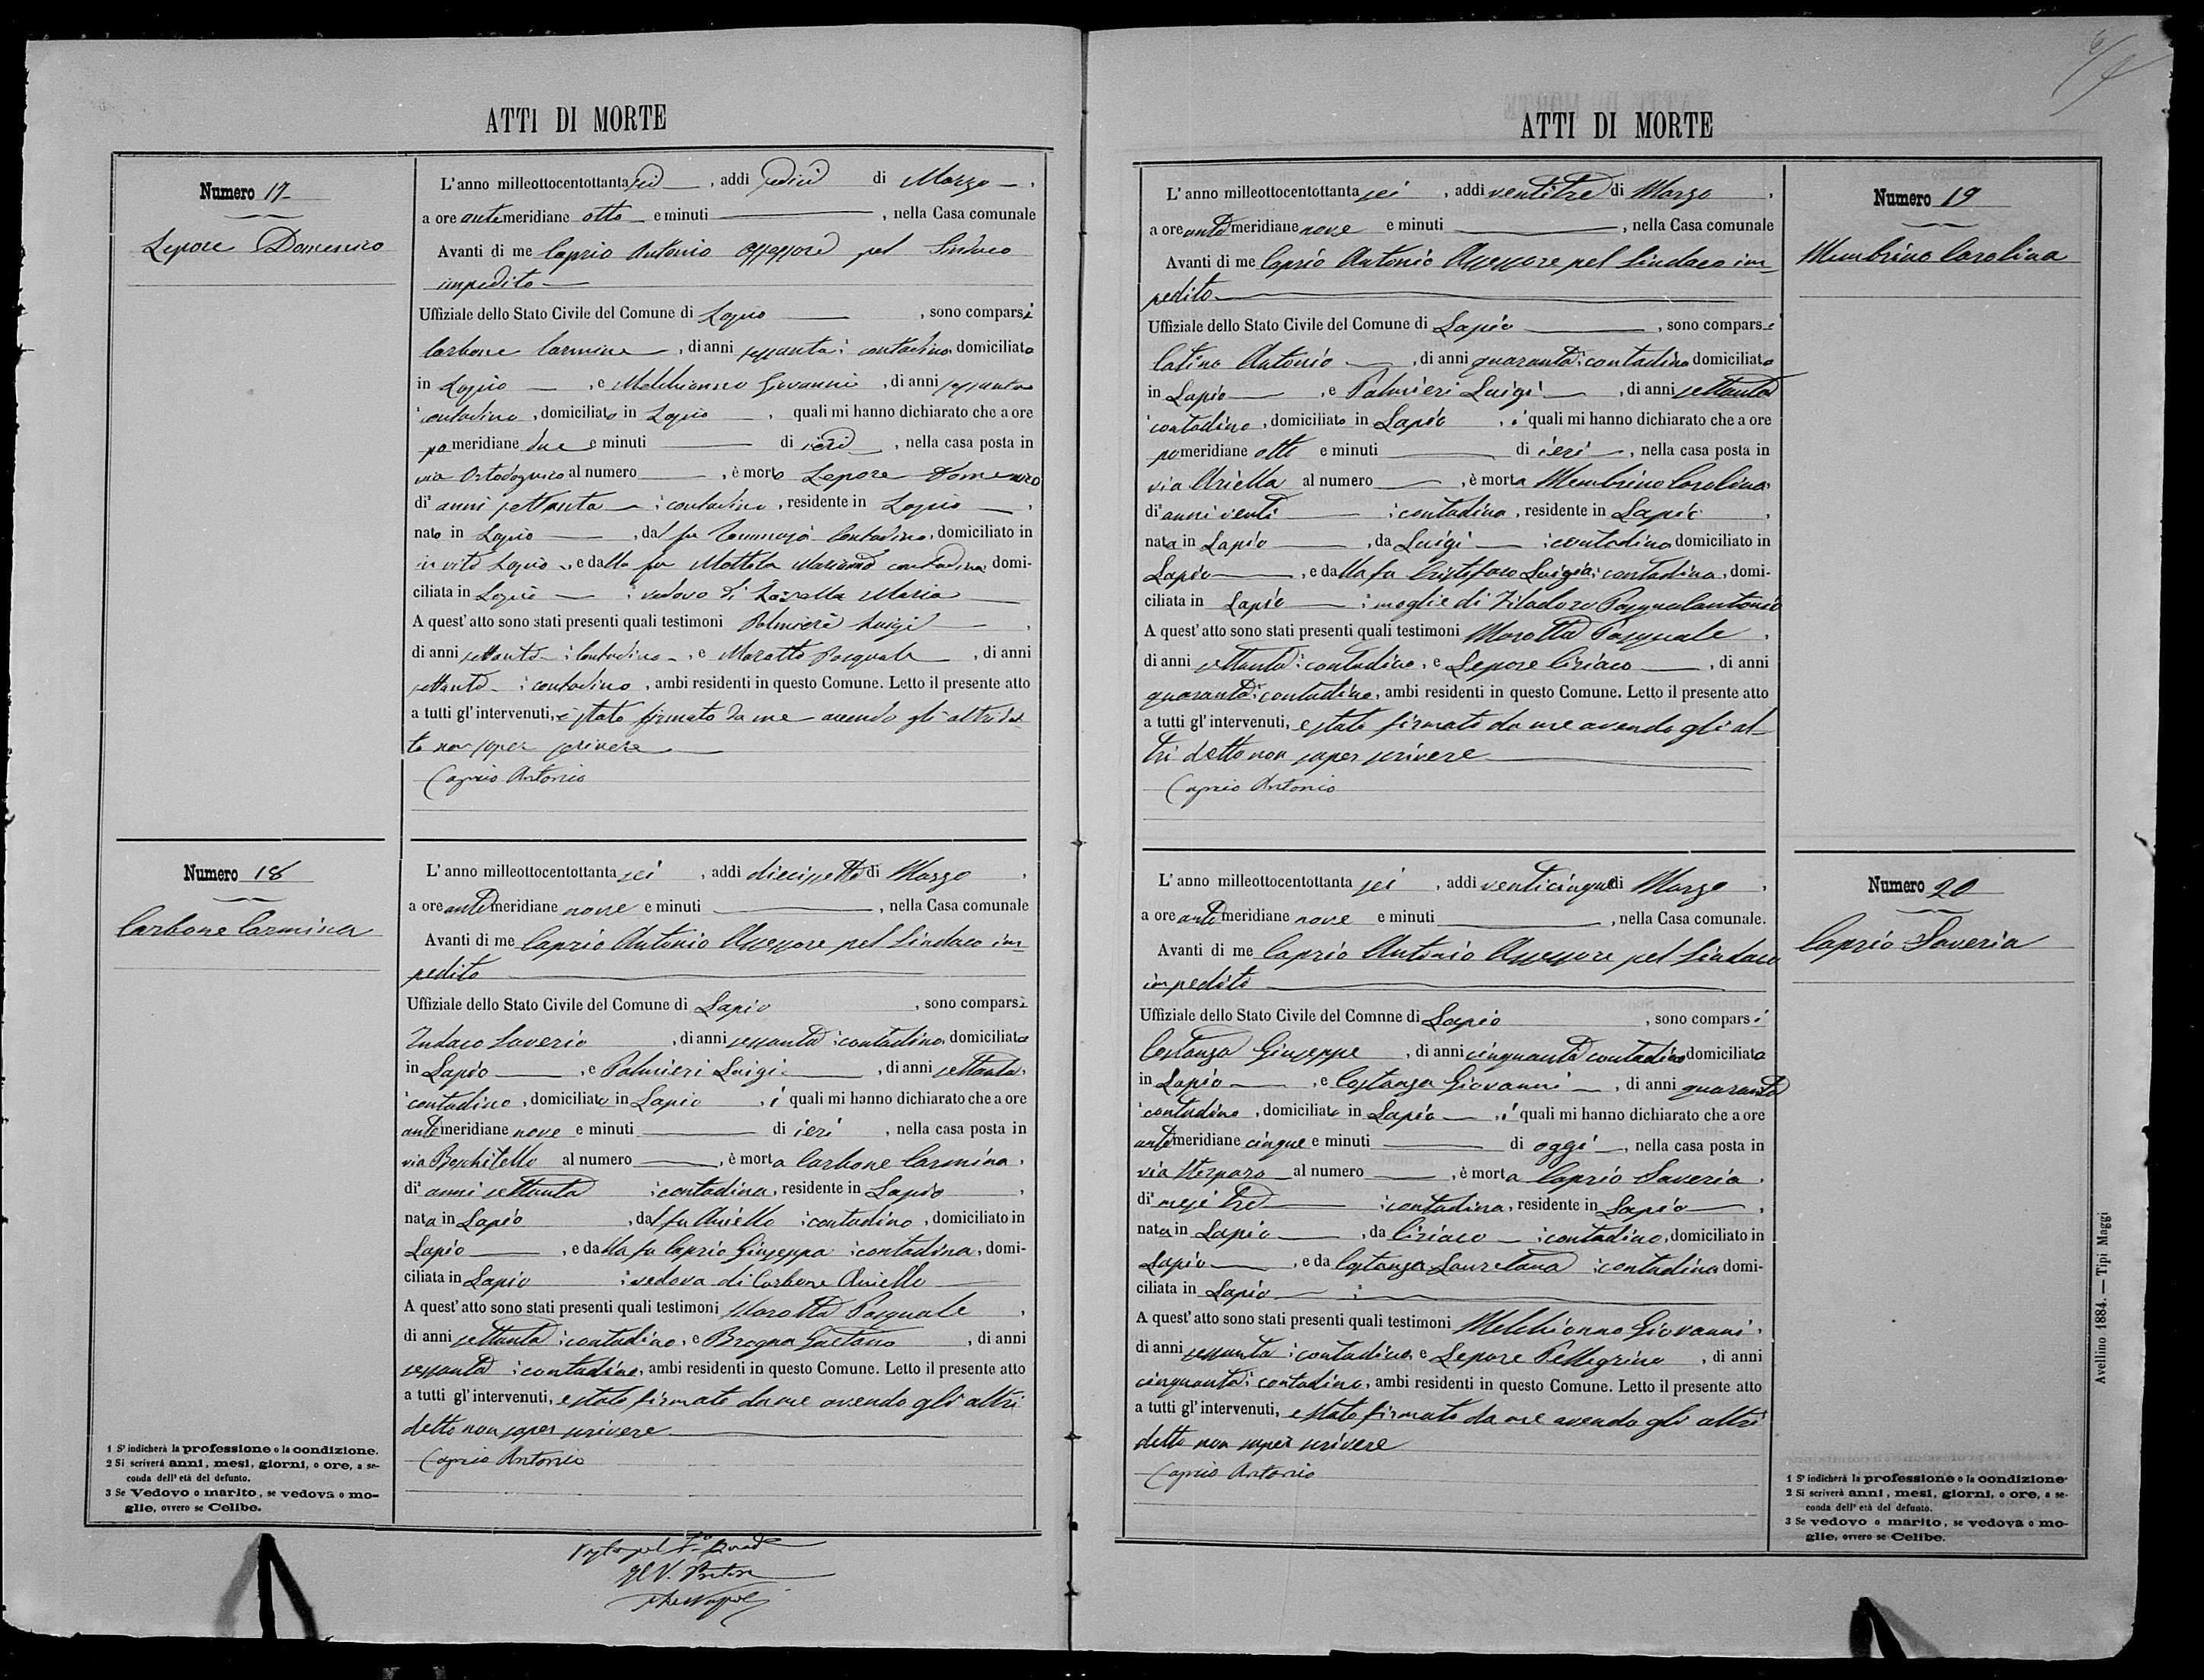 ATTI DI MORTE
Numero 17
Lepore Domenico
L'anno milleottocentottanta sei, addì sedici di Marzo,
a ore antemeridiane otto e minuti, nella Casa comunale
Avanti di me Caprio Antonio Assessore pel Sindaco
impedito
Uffiziale dello Stato Civile del Comune di Lapio, sono comparsi
Carbone Carmine, di anni sessanta: contadino domiciliato
in Lapio, e Melchionno Giovanni, di anni sessanta
contadino, domiciliato in Lapio, quali mi hanno dichiarato che a ore
pomeridiane due e minuti di ieri, nella casa posta in
via al numero, è morto Lepore Domenico
di anni settanta: contadino, residente in Lapio,
nato in Lapio, dal fu Tommaso contadino, domiciliato in
in vita Lapio, e dalla fu Mottola contadina, domi-
ciliata in Lapio: vedovo di Maria
A quest'atto sono stati presenti quali testimoni Palmieri Luigi,
di anni settanta: contadino, e Marotta Pasquale, di anni
settanta: contadino, ambi residenti in questo Comune. Letto il presente atto
a tutti gl'intervenuti, è stato firmato da me avendo gli altri det
to non saper scrivere
Caprio Antonio
Numero 18
Carbone Carmina
L'anno milleottocentottanta sei, addì diecisette di Marzo,
a ore antemeridiane nove e minuti, nella Casa comunale
Avanti di me Caprio Antonio Assessore pel Sindaco im-
pedito
Uffiziale dello Stato Civile del Comune di Lapio, sono comparsi
Saverio, di anni sessanta: contadino domiciliato
in Lapio, e Palmieri Luigi, di anni settanta
contadino, domiciliato in Lapio, i quali mi hanno dichiarato che a ore
antemeridiane nove e minuti di ieri, nella casa posta in
via al numero, è morta Carbone Carmina,
di anni settanta: contadina, residente in Lapio,
nata in Lapio, dal fu Aniello: contadino, domiciliato in
Lapio, e dalla fu Caprio Giuseppa: contadina, domi-
ciliata in Lapio: vedova di Carbone Aniello
A quest'atto sono stati presenti quali testimoni Marotta Pasquale,
di anni settanta: contadino, e Brogna Gaetano, di anni
sessanta: contadino, ambi residenti in questo Comune. Letto il presente atto
a tutti gl'intervenuti, è stato firmato da me avendo gli altri
detto non saper scrivere
Caprio Antonio
1 S'indicherà la professione o la condizione.
2 Si scriverà anni, mesi, giorni, o ore, a se-
conda dell'età del defunto.
3 Se Vedovo o marito, se vedova o mo-
glie, ovvero se Celibe.
Il V. Pretore
ATTI DI MORTE
L'anno milleottocentottanta sei, addì ventitre di Marzo,
a ore antemeridiane nove e minuti, nella Casa comunale
Avanti di me Caprio Antonio Assessore pel Sindaco im-
pedito
Uffiziale dello Stato Civile del Comune di Lapio, sono comparsi
Latino Antonio, di anni quaranta: contadino domiciliato
in Lapio, e Palmieri Luigi, di anni settanta
contadino, domiciliato in Lapio, i quali mi hanno dichiarato che a ore
pomeridiane otto e minuti di ieri, nella casa posta in
via Ariella al numero, è morta Membrino Carolina
di anni venti: contadina, residente in Lapio,
nata in Lapio, da Luigi: contadino domiciliato in
Lapio, e dalla fu Cristofaro Luigia: contadina, domi-
ciliata in Lapio: moglie di Pasqualantonio
A quest'atto sono stati presenti quali testimoni Marotta Pasquale,
di anni settanta: contadino, e Lepore Ciriaco, di anni
quaranta: contadino, ambi residenti in questo Comune. Letto il presente atto
a tutti gl'intervenuti, è stato firmato da me avendo gli al-
tri detto non saper scrivere
Caprio Antonio
Numero 19
Membrino Carolina
L'anno milleottocentottanta sei, addì venticinque di Marzo,
a ore antemeridiane nove e minuti, nella Casa comunale.
Avanti di me Caprio Antonio Assessore pel Sindaco
impedito
Uffiziale dello Stato Civile del Comnne di Lapio, sono comparsi
Costanza Giuseppe, di anni cinquanta contadino domiciliato
in Lapio, e Costanza Giovanni, di anni quaranta
contadino, domiciliato in Lapio, i quali mi hanno dichiarato che a ore
antemeridiane cinque e minuti di oggi, nella casa posta in
via al numero, è morta Caprio Saveria,
di mesi tre: contadina, residente in Lapio,
nata in Lapio, da Ciriaco: contadino, domiciliato in
Lapio, e da Costanza Lauretana: contadina domi-
ciliata in Lapio:
A quest'atto sono stati presenti quali testimoni Melchionno Giovanni,
di anni sessanta: contadino, e Lepore Pellegrino, di anni
cinquanta: contadino, ambi residenti in questo Comune. Letto il presente atto
a tutti gl'intervenuti, è stato firmato da me avendo gli altri
detto non saper scrivere
Caprio Antonio
Numero 20
Caprio Saveria
1 S'indicherà la professione o la condizione.
2 Si scriverà anni, mesi, giorni, o ore, a se-
conda dell'età del defunto.
3 Se vedovo o marito, se vedova o mo-
glie, ovvero se Celibe.
Avellino 1884. — Tipi Maggi